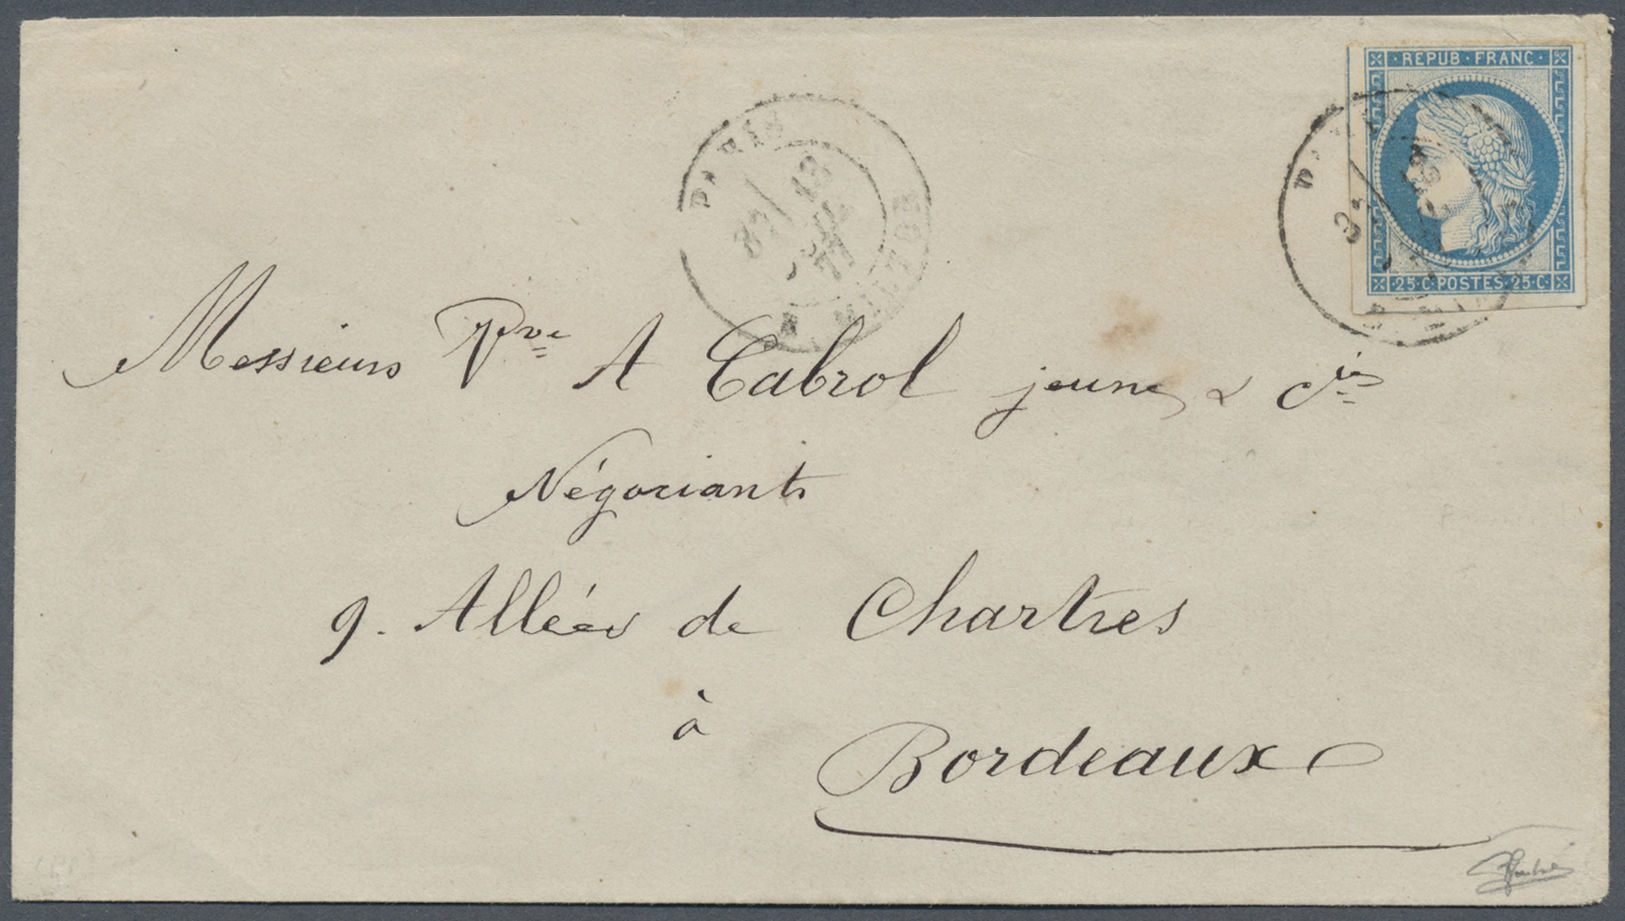 REPUB · FRANC ·
25 · C · POSTES · 25 · C ·
PARIS
Messieurs Vve A Cabrol jeune & Cie
Négociants
9. Allées de Chartres
à
Bordeaux